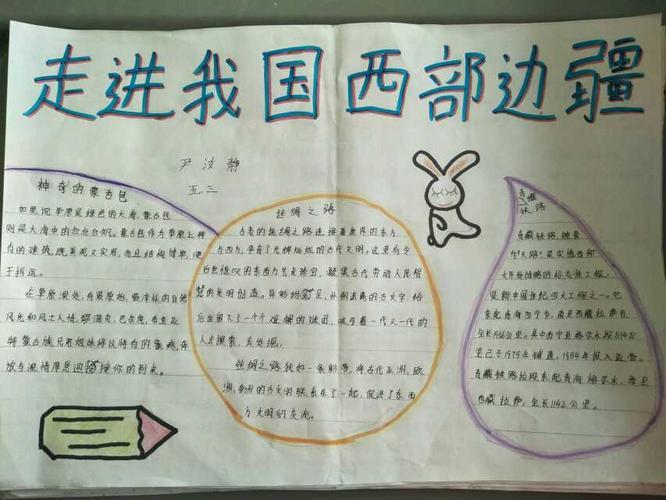 走进我国西部边疆
尹汝静
五.三
神奇的蒙古包
如果说草原是绿色的大海,蒙古包
则是大海中的点点白帆。蒙古包作为草原上特
有的建筑,既美观又实用,而且结构简单,便
于拆运。
在草原深处,有最原始、最淳朴的自然
风光和风土人情。
蒙古族兄弟姐妹将以特有的豪爽、奔
放与激情厚意迎接你的到来。
丝绸之路
古老的丝绸之路连接着世界的东方
与西方,孕育了光辉灿烂的古代文明。这里有令
后世惊叹的东西方艺术瑰宝,凝集古代劳动人民智
慧的发明创造。
后世留下了一个个难解的谜团,吸引着一代又一代的
人去探索,去发掘。
丝绸之路犹如一条彩带,将古代亚洲、欧
洲、非洲的古文明联系在了一起,促进了东西
方文明的交流。
青藏
铁路
青藏铁路,被誉
为“天路”,是实施西部
大开发战略的标志性工程,
是新中国世纪四大工程之一。它
东起青海西宁市,南至西藏拉萨市,
全长1956公里。其中西宁至格尔木段814公
里已于1979年铺通,1984年投入运营。
青藏铁路格拉段东起青海格尔木,西至
西藏拉萨,全长1142公里。